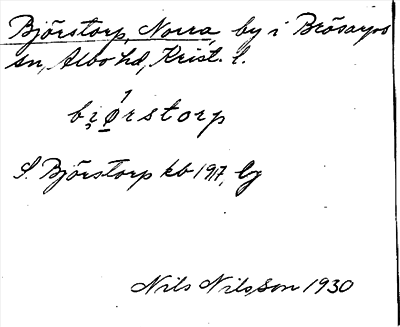 Björstorp, Norra, by i Brösarps
sn, Albo hd, Krist. l.
bi̯ørstorp
S. Björstorp kb 1917, by
Nils Nilsson 1930